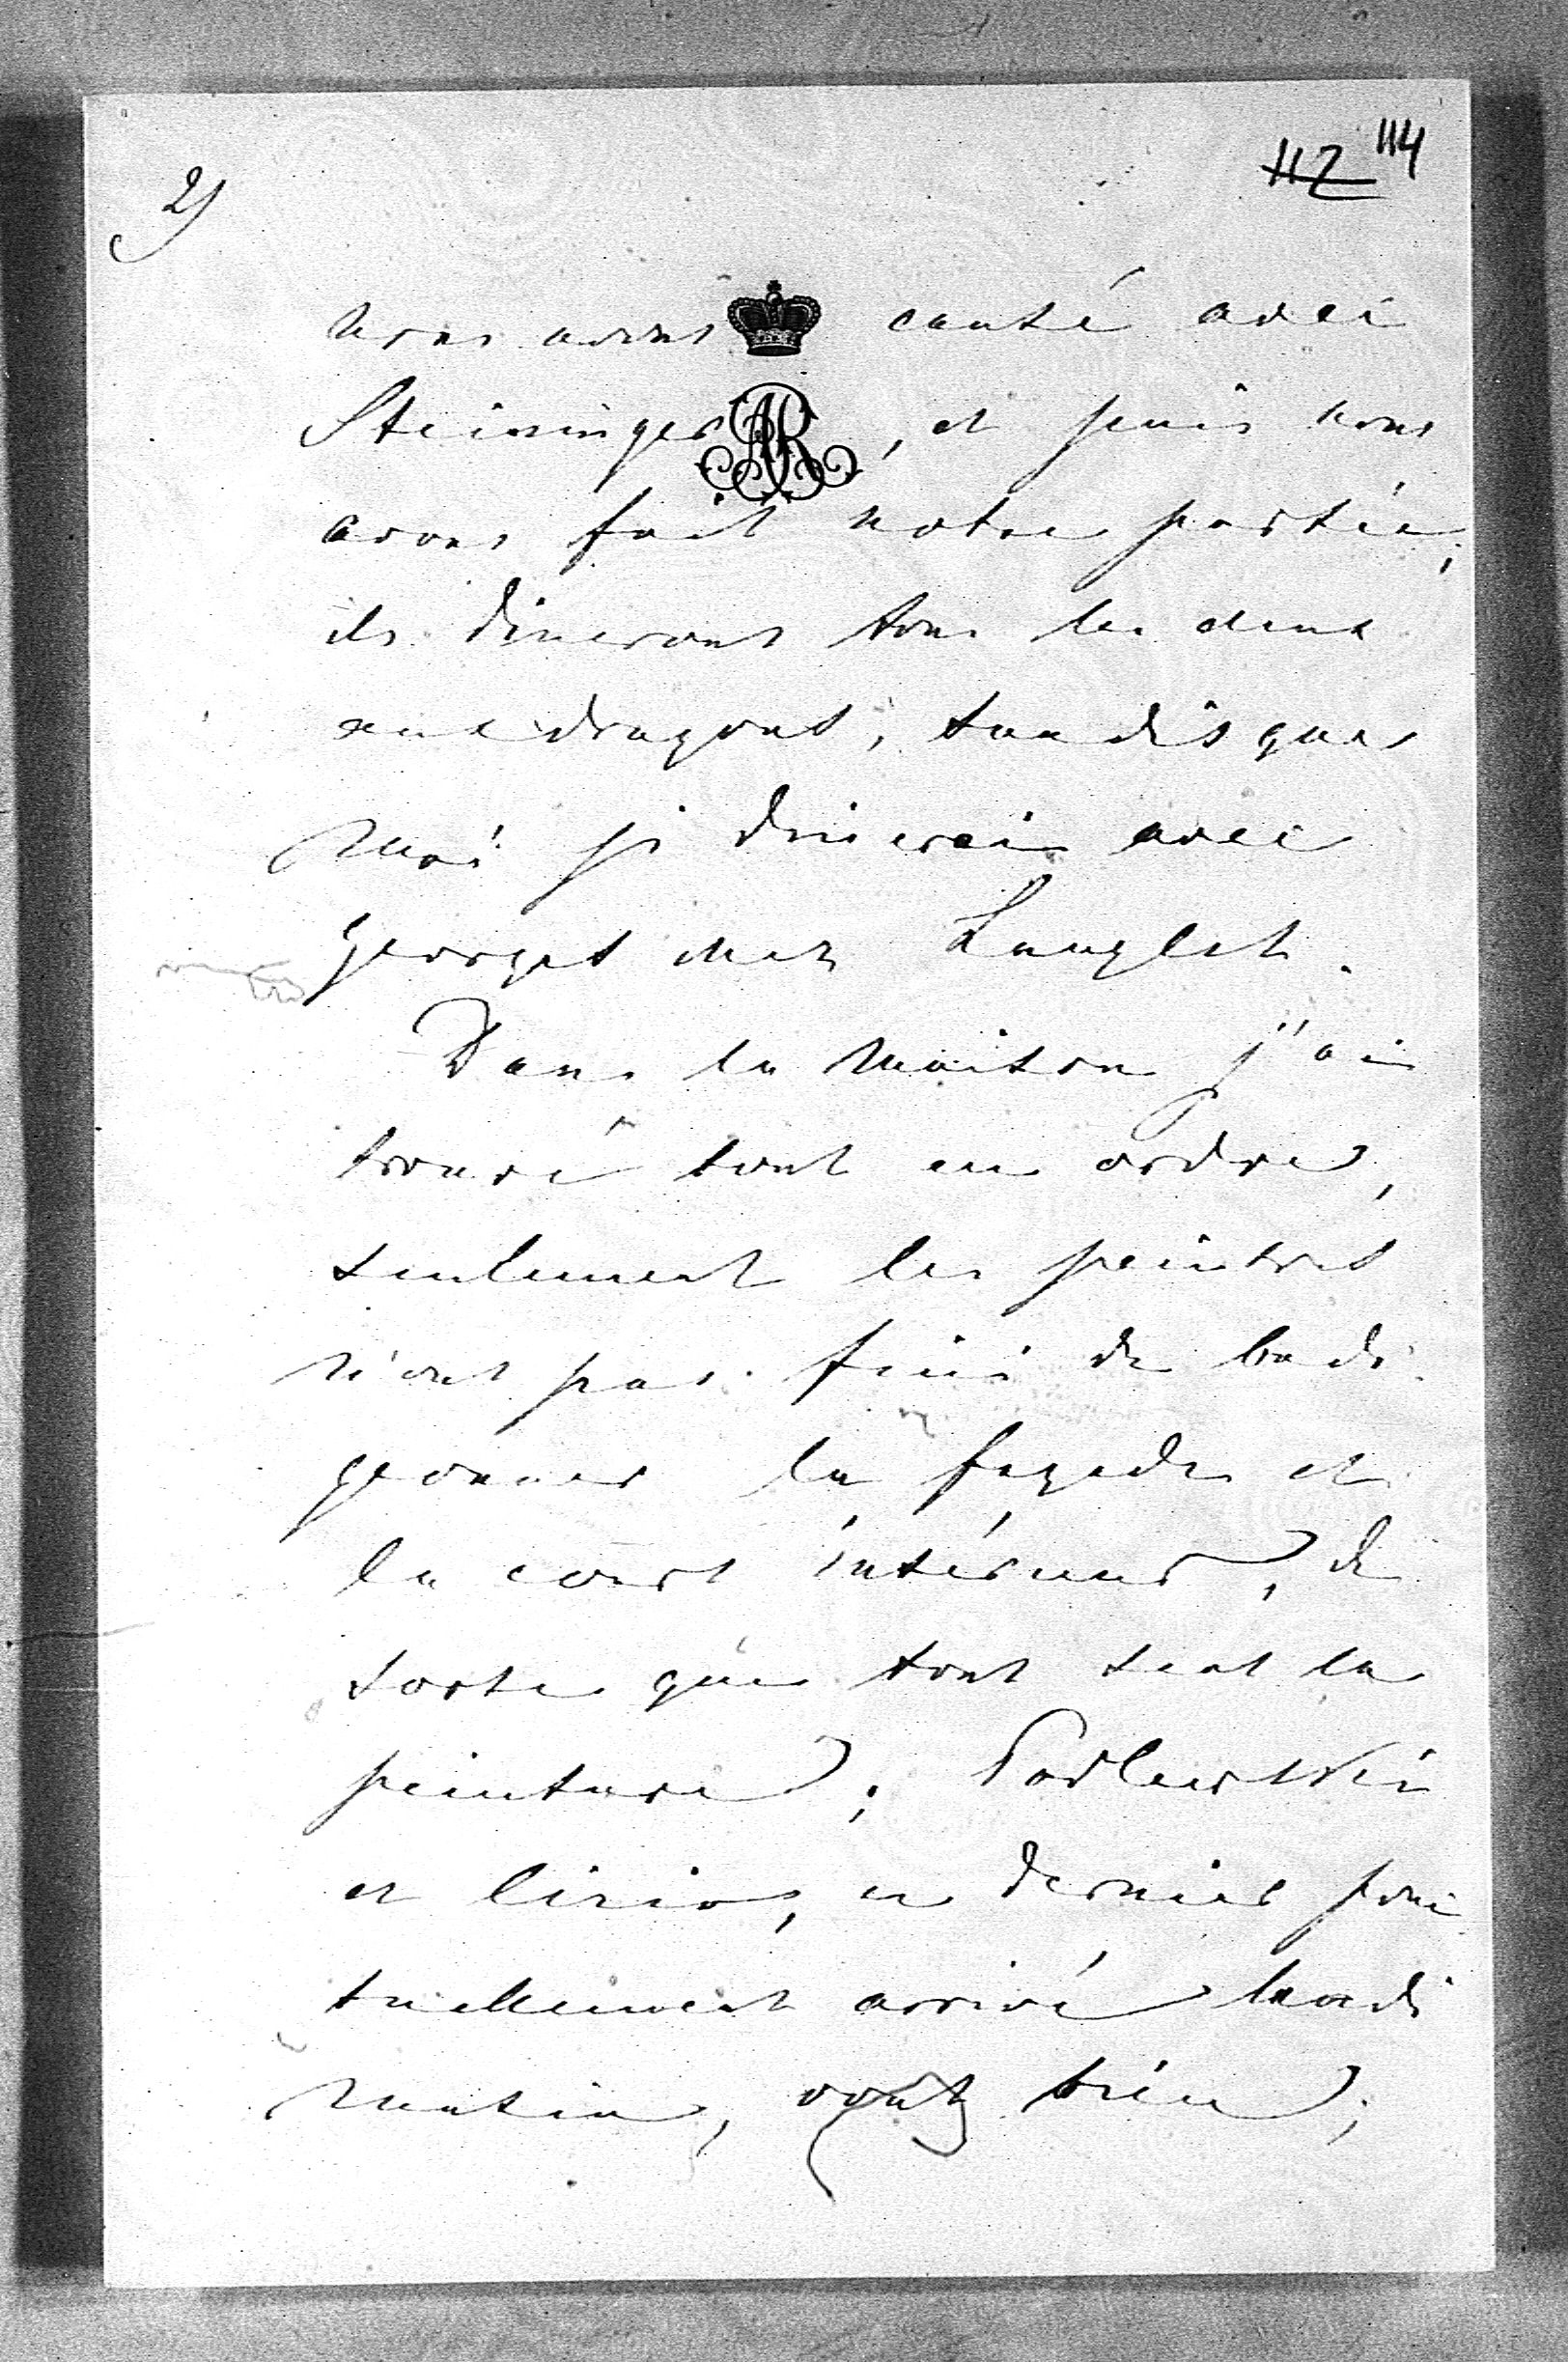 2)
112 114
nous avons causé avec
Steininger, et puis nous
avons fait notre partie;
ils dineront tous les deux
aux dragons, tandis que
moi je dinerai avec
Georges chez Langlet.
Dans la maison j'ai
trouvé tout en ordre,
seulement les peintres
n'ont pas fini de badi
geonner la façade et
la cour intérieure, de
sorte que tout sent la
peinture; Podlewski
et Cirio, ce dernier ponc
tuellement arrivé lundi
matin, vont bien;